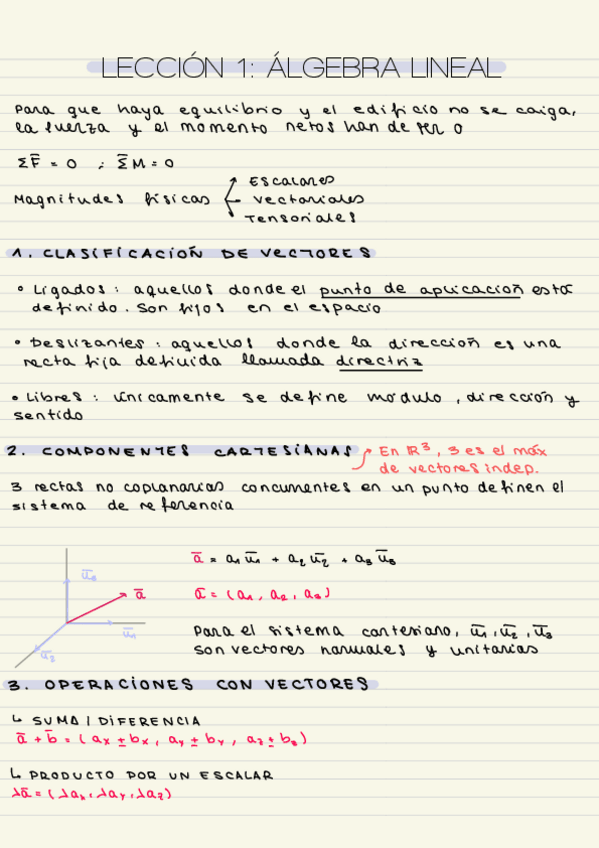 LECCIÓN 1: ÁLGEBRA LINEAL
Para que haya equilibrio y el edificio no se caiga,
la fuerza y el momento netos han de ser 0
ΣF̄ = 0 ; Σ̄M = 0
Magnitudes físicas
Escalares
Vectoriales
Tensoriales
1. CLASIFICACIÓN DE VECTORES
• Ligados : aquellos donde el punto de aplicación está
definido. Son fijos en el espacio
• Deslizantes : aquellos donde la dirección es una
recta fija definida llamada directriz
• Libres : únicamente se define módulo, dirección y
sentido
2. COMPONENTES CARTESIANAS
En ℝ³, 3 es el máx
de vectores indep.
3 rectas no coplanarias concurrentes en un punto definen el
sistema de referencia
ū₃
ā
ū₁
ū₂
ā = a₁ū₁ + a₂ū₂ + a₃ū₃
ā = (a₁, a₂, a₃)
Para el sistema cartesiano, ū₁, ū₂, ū₃
son vectores normales y unitarias
3. OPERACIONES CON VECTORES
↳ SUMA / DIFERENCIA
ā + b̄ = (ax ± bx, ay ± by, az ± bz)
↳ PRODUCTO POR UN ESCALAR
λā = (λax, λay, λaz)